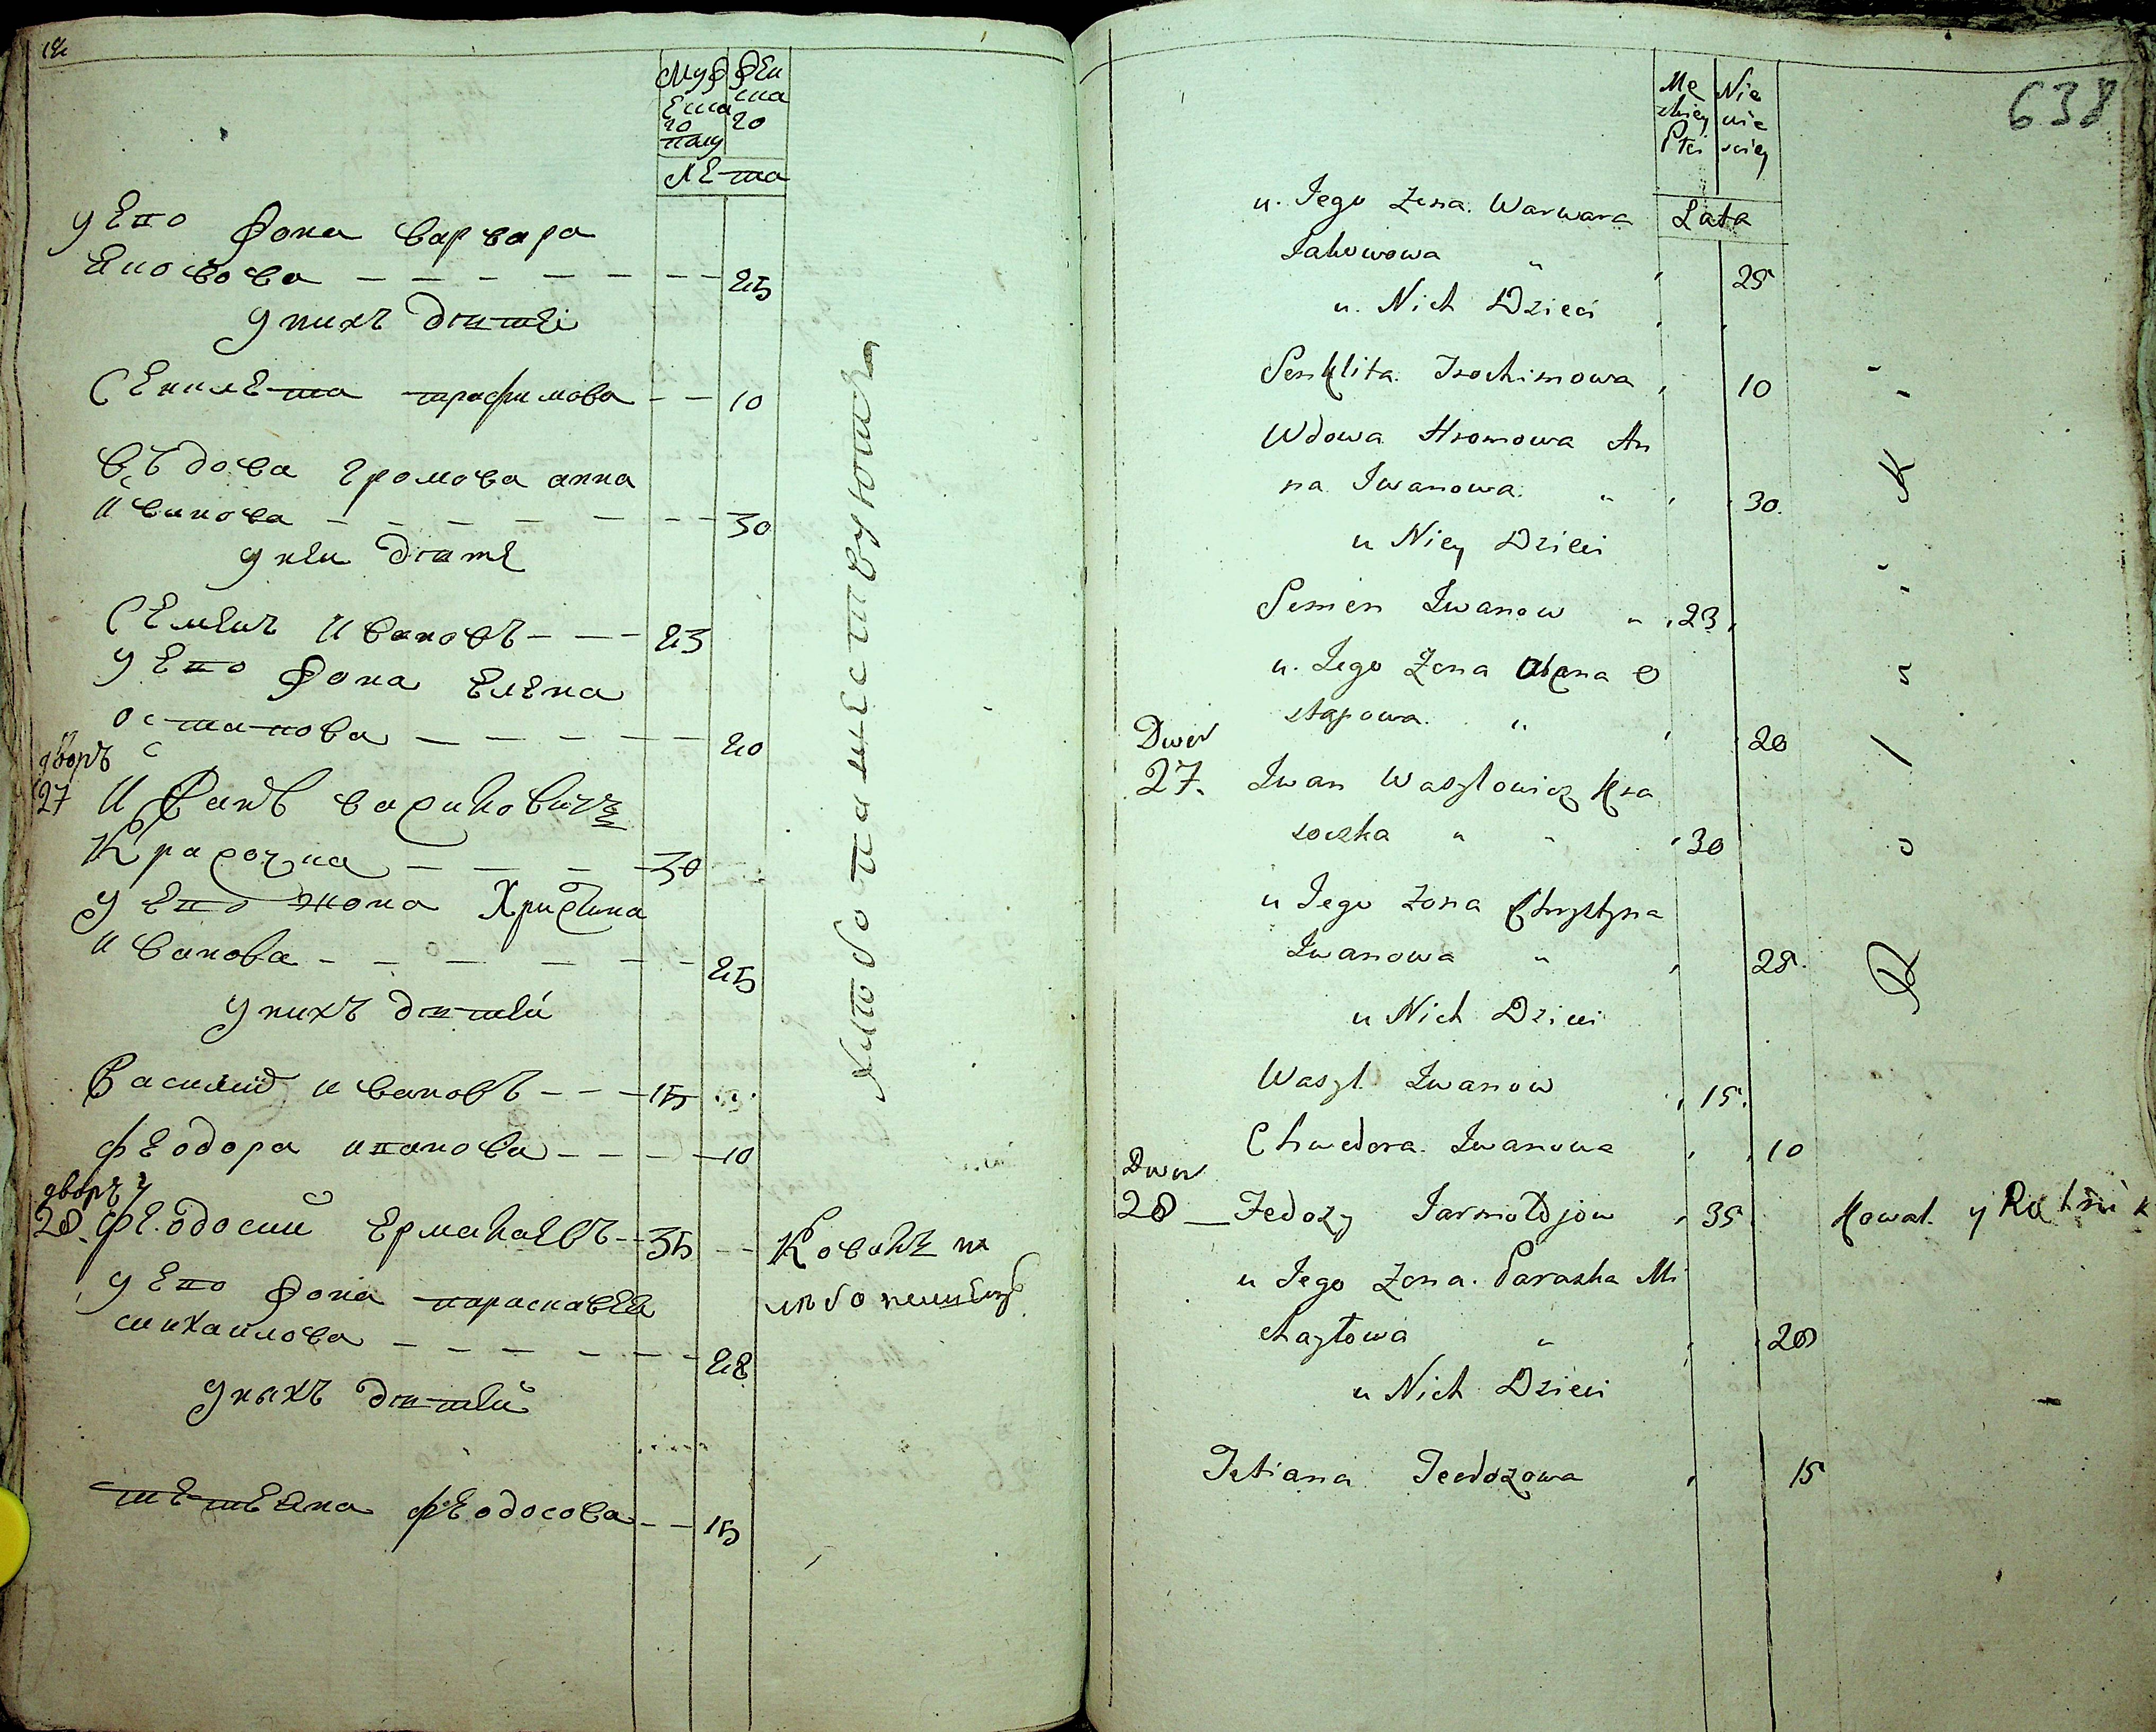 Муж Жен
еска ска
го го
полу
Лета
у его жона варвара
Яковова — — — — — — — 25
у нихъ дѣтей
Секлета трофимова — — 10
въдова громова анна
Иванова — — — — — — — 30
у неи дѣте
Семенъ Ивановъ — — — 23
у его жона Елена
остапова — — — — — 20
дворъ
27 Иванъ василовичъ
Красочка — — — — 30
у его жона Христина
Иванова — — — — — — 25
у нихъ дѣтей
Василий Ивановъ — — — 15
феодора иванова — — — — 10
дворъ
28. феодосий Ермолаевъ — 35 — —
у его жона парасковея
михаилова — — — — — — 28
у нихъ дѣтей
тетеяна феодосова — — 15
хлѣбопашествуютъ
Ковалъ и
638
Mę Nie
skiey wie
Płci sciey
Lata
u. Jego Zona. Warwara
Jakowowa " 25
u. Nich Dzieci
Senklita. Trochimowa 10
Wdowa Hromowa An
na Iwanowa. " 30.
u Niey Dzieci
Semen Iwanow " 23
u. Jego Zona Olena O
stapowa. " 20
Dwor
27. Iwan Wasylowicz Kra
soczka " " 30
u Jego Zona Chrystyna
Iwanowa " 25.
u Nich Dzieci
Wasyl. Iwanow 15.
Chwedora. Iwanowa 10
Dwor
28 — Fedozy Jarmołojow 35
u Jego Zona. Paraska Mi
chayłowa " 28
u Nich Dzieci
Tetiana Teodozowa 15
R o l n i k
Kowal. y Rolnik